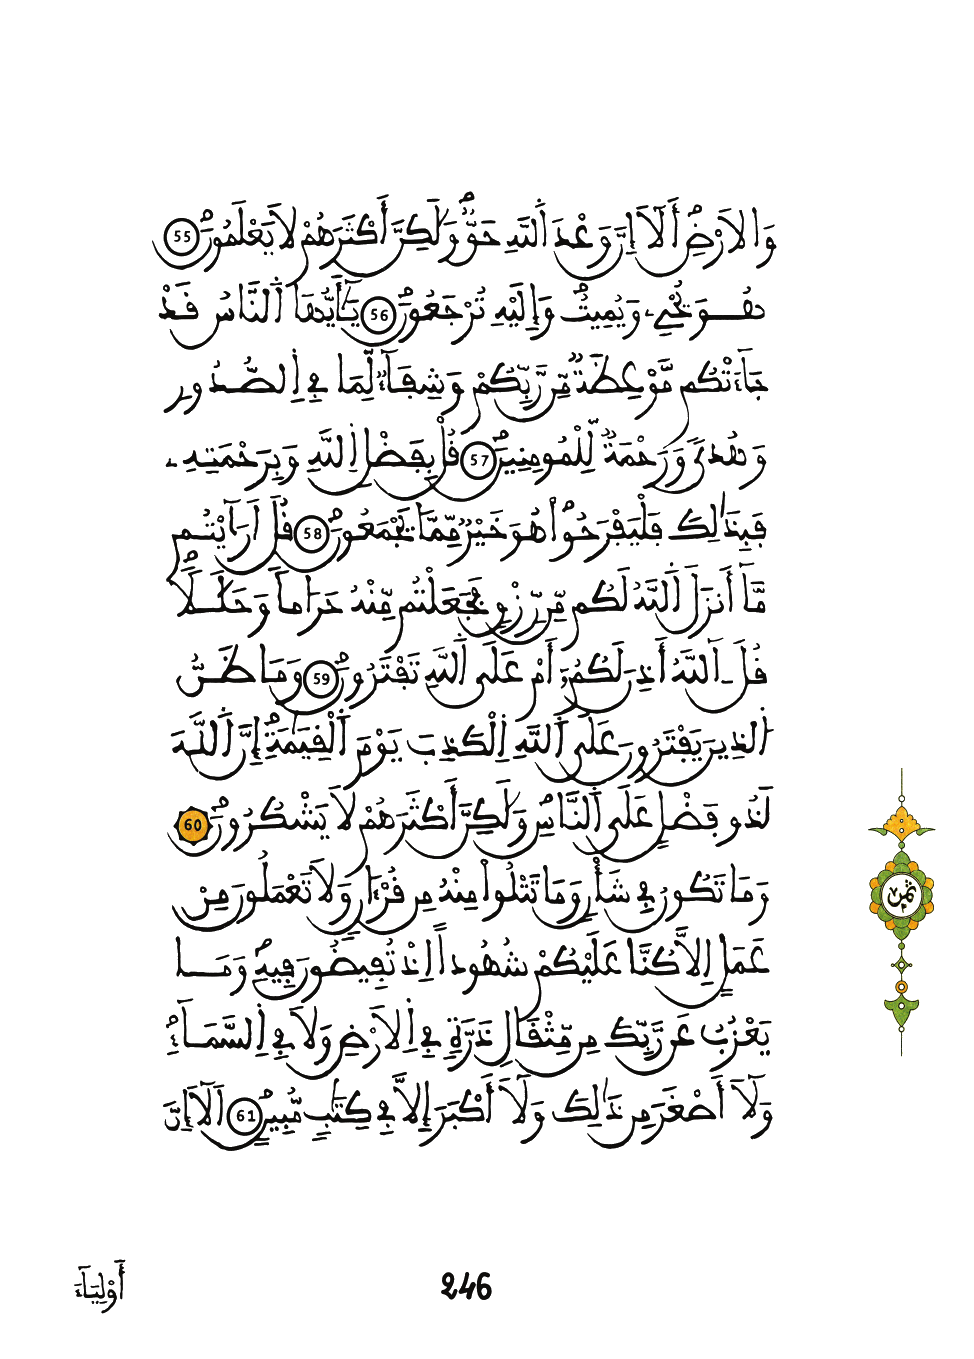 وَالَارْضِۖ أَلَآ إِنَّ وَعْدَ اَ۬للَّهِ حَقّٞۖ وَلَٰكِنَّ أَكْثَرَهُمْ لَا يَعْلَمُونَۖ 55
هُوَ يُحْيِۦ وَيُمِيتُۖ وَإِلَيْهِ تُرْجَعُونَۖ 56 يَٰٓأَيُّهَا اَ۬لنَّاسُ قَدْ
جَآءَتْكُم مَّوْعِظَةٞ مِّن رَّبِّكُمْ وَشِفَآءٞ لِّمَا فِے اِ۬لصُّدُورِ
وَهُدىٗ وَرَحْمَةٞ لِّلْمُومِنِينَۖ 57 قُلْ بِفَضْلِ اِ۬للَّهِ وَبِرَحْمَتِهِۦ
فَبِذَٰلِكَ فَلْيَفْرَحُواْ هُوَ خَيْرٞ مِّمَّا يَجْمَعُونَۖ 58 قُلَ اَرَٰٓيْتُم
مَّآ أَنزَلَ اَ۬للَّهُ لَكُم مِّن رِّزْقٖ فَجَعَلْتُم مِّنْهُ حَرَاماٗ وَحَلَٰلاٗۖ
قُلَ ـ آللَّهُ أَذِنَ لَكُمُۥٓ أَمْ عَلَي اَ۬للَّهِ تَفْتَرُونَۖ 59 وَمَا ظَنُّ
اُ۬لذِينَ يَفْتَرُونَ عَلَي اَ۬للَّهِ اِ۬لْكَذِبَ يَوْمَ اَ۬لْقِيَٰمَةِۖ إِنَّ اَ۬للَّهَ
لَذُو فَضْلٍ عَلَي اَ۬لنَّاسِۖ وَلَٰكِنَّ أَكْثَرَهُمْ لَا يَشْكُرُونَۖ 60
وَمَا تَكُونُ فِے شَأْنٖ وَمَا تَتْلُواْ مِنْهُ مِن قُرْءَانٖ وَلَا تَعْمَلُونَ مِنْ
عَمَلٍ اِلَّا كُنَّا عَلَيْكُمْ شُهُوداً اِذْ تُفِيضُونَ فِيهِۖ وَمَا
يَعْزُبُ عَن رَّبِّكَ مِن مِّثْقَالِ ذَرَّةٖ فِے اِ۬لَارْضِ وَلَا فِے اِ۬لسَّمَآءِۖ
وَلَآ أَصْغَرَ مِن ذَٰلِكَ وَلَآ أَكْبَرَ إِلَّا فِے كِتَٰبٖ مُّبِينٍۖ 61 اَلَآ إِنَّ
ثمن
أَوْلِيَآءَ
246